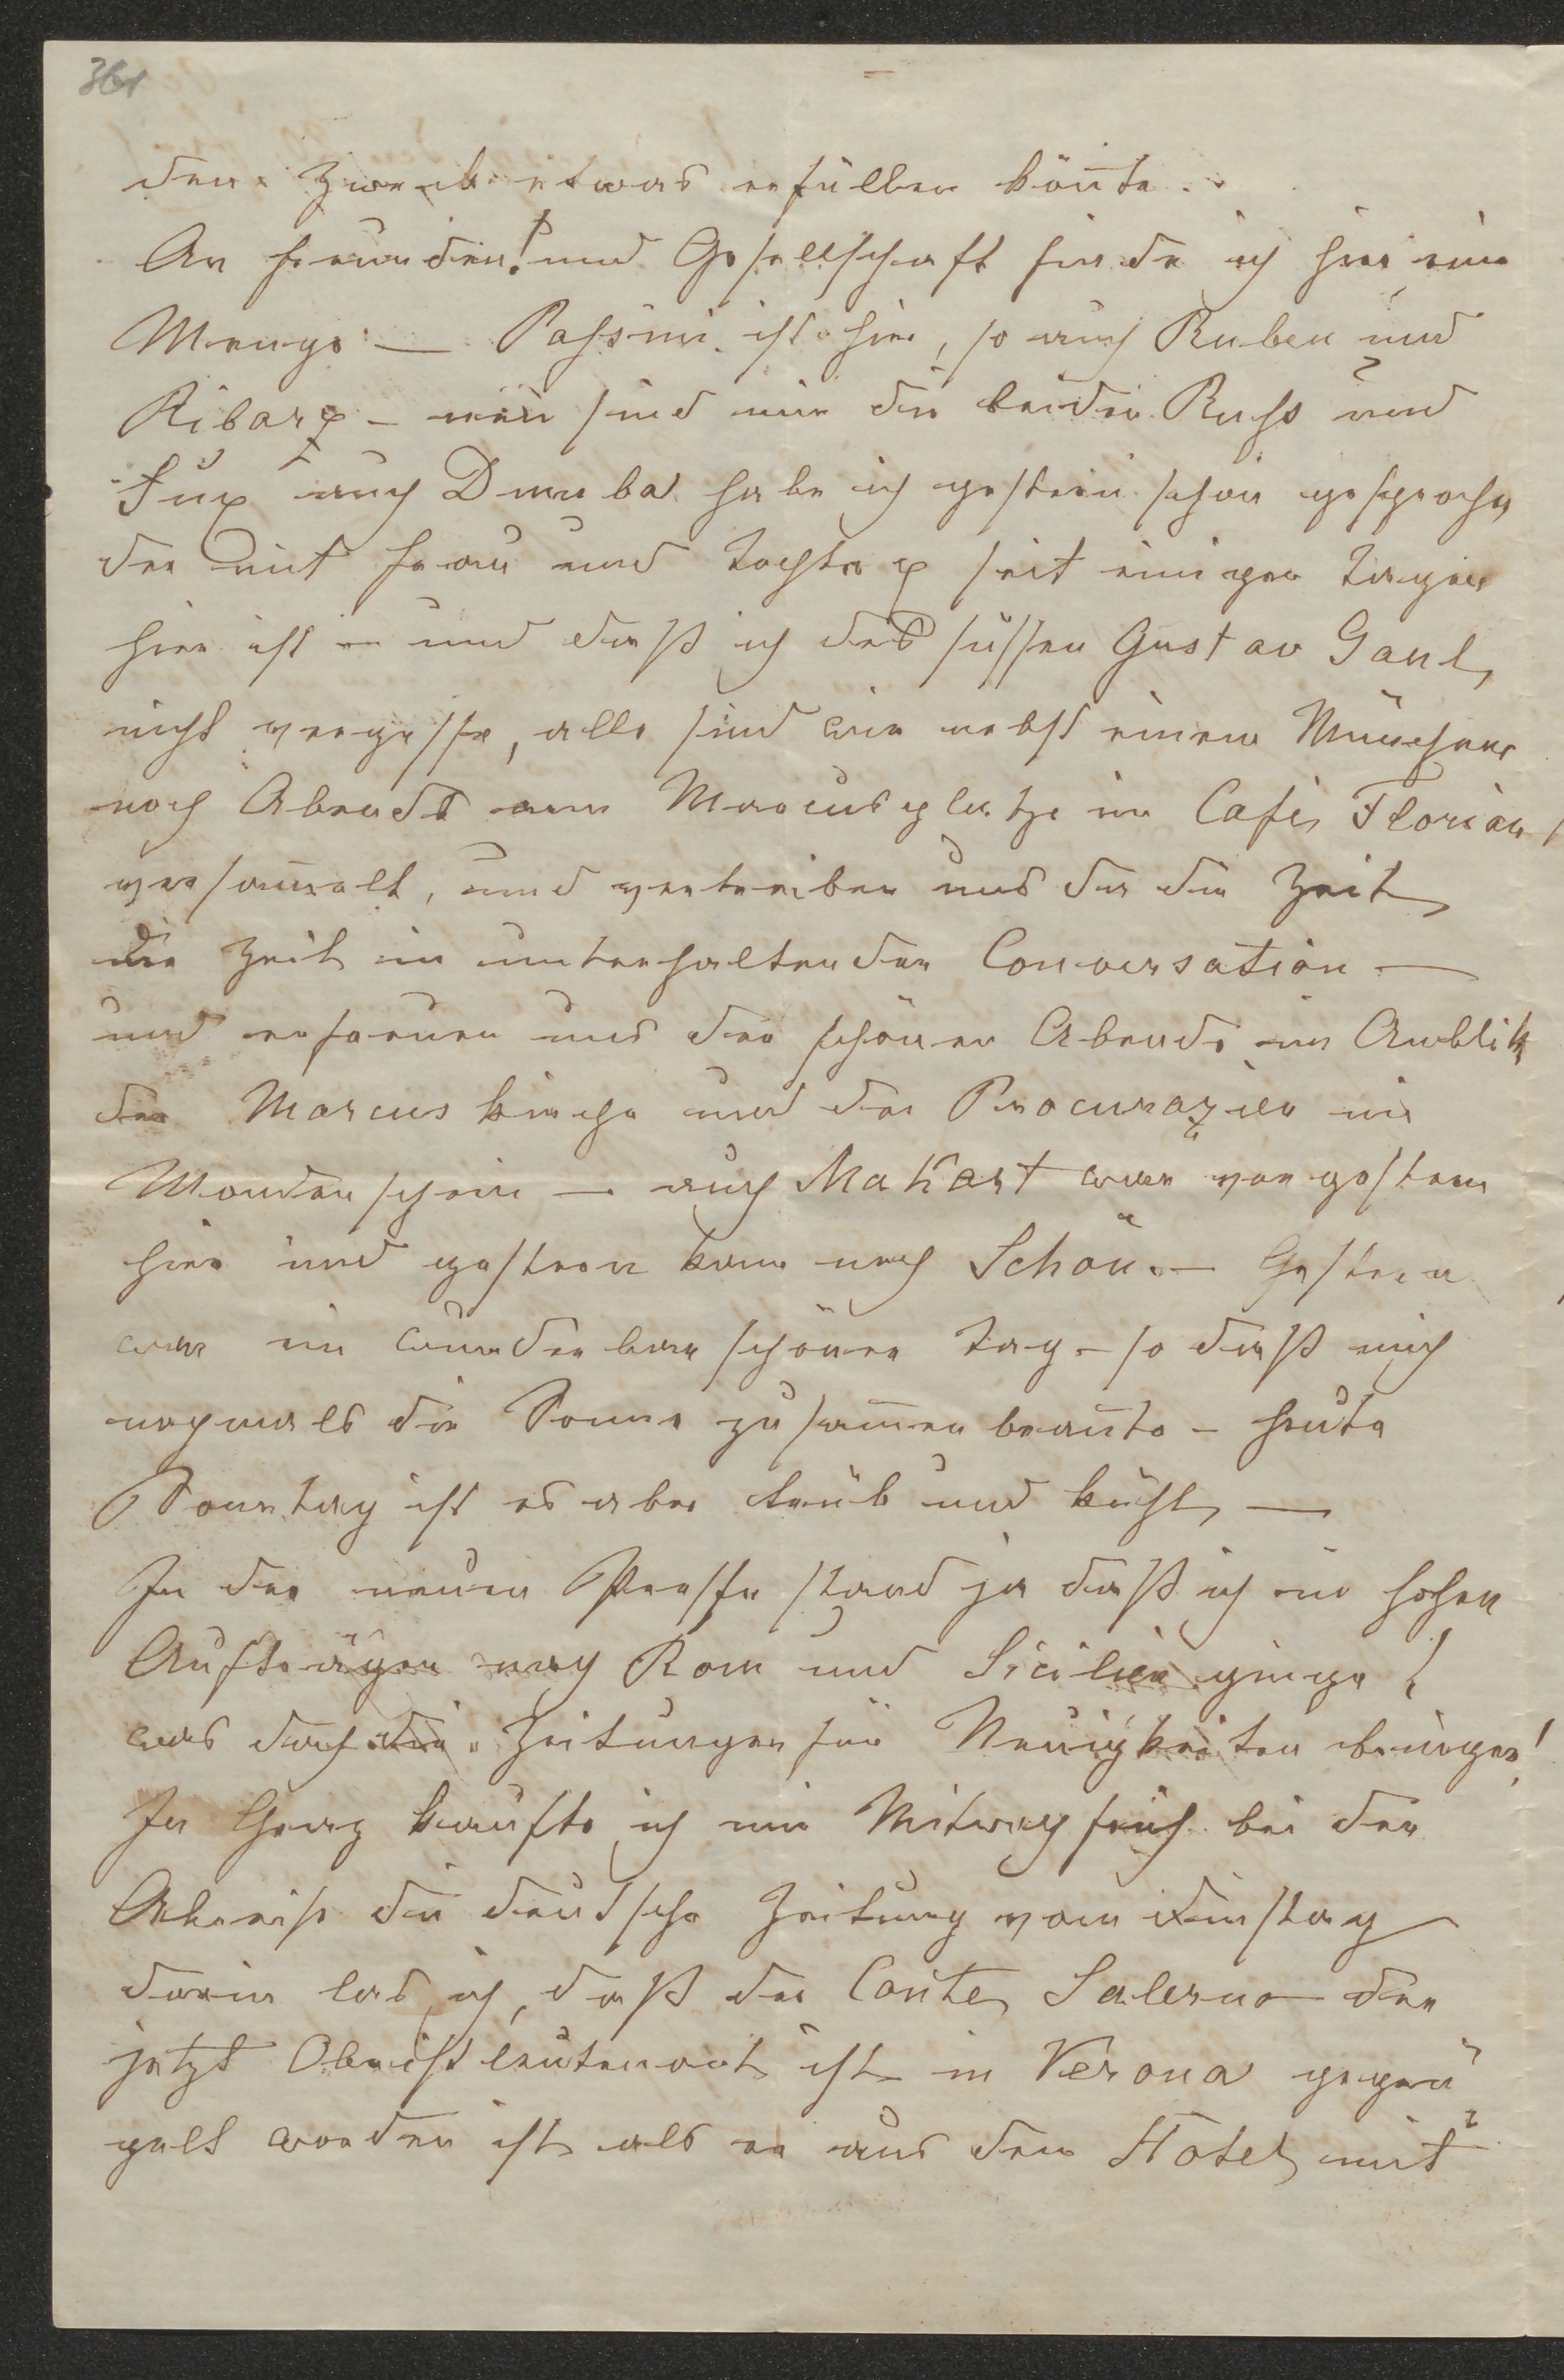 361
den Zweck etwas erfüllen kön̅te.
An Freunden! und Gesellschaft finde ich hier eine
Menge — Passini ist hier, so auch Ruben und
Ribarz – nun sind wir die beiden Russ und
Fux auch Dumba habe ich gestern schon gesprochen
der mit Frau und Tochter seit einigen Tagen
hier ist – und daß ich des süssen Gustav Gaul
nicht vergesse, alle sind wir nebst einem Münchner
noch Abends am Marcusplatze im Café Florian
versam̅elt, und vertreiben uns da die Zeit
die Zeit in unterhaltender Conversation —
und erfreuen uns der schönen Abende im Anblik
der Marcuskirche und der Procurazien im
Mondenschein — auch Makart war vorgestern
hier und gestern kam noch Schön. — Gestern
war ein wunderbar schöner Tag – so daß mich
nochmals die Sonne zusam̅en bran̅te – heute
Sonntag ist es aber trüb und kühl, —
In der neuen Presse stand ja daß ich in hohen
Aufträgen nach Rom und Sicilien ginge!
was doch die Zeitungen für Neuigkeiten bringen!
In Graz kaufte ich mir Mitwoch früh bei der
Abreise die deutsche Zeitung vom Dinstag
darin las ich, daß der Conte Salerno der
jetzt Obristleutenant ist in Verona geprü-
gelt worden ist als er aus dem Hotel mit